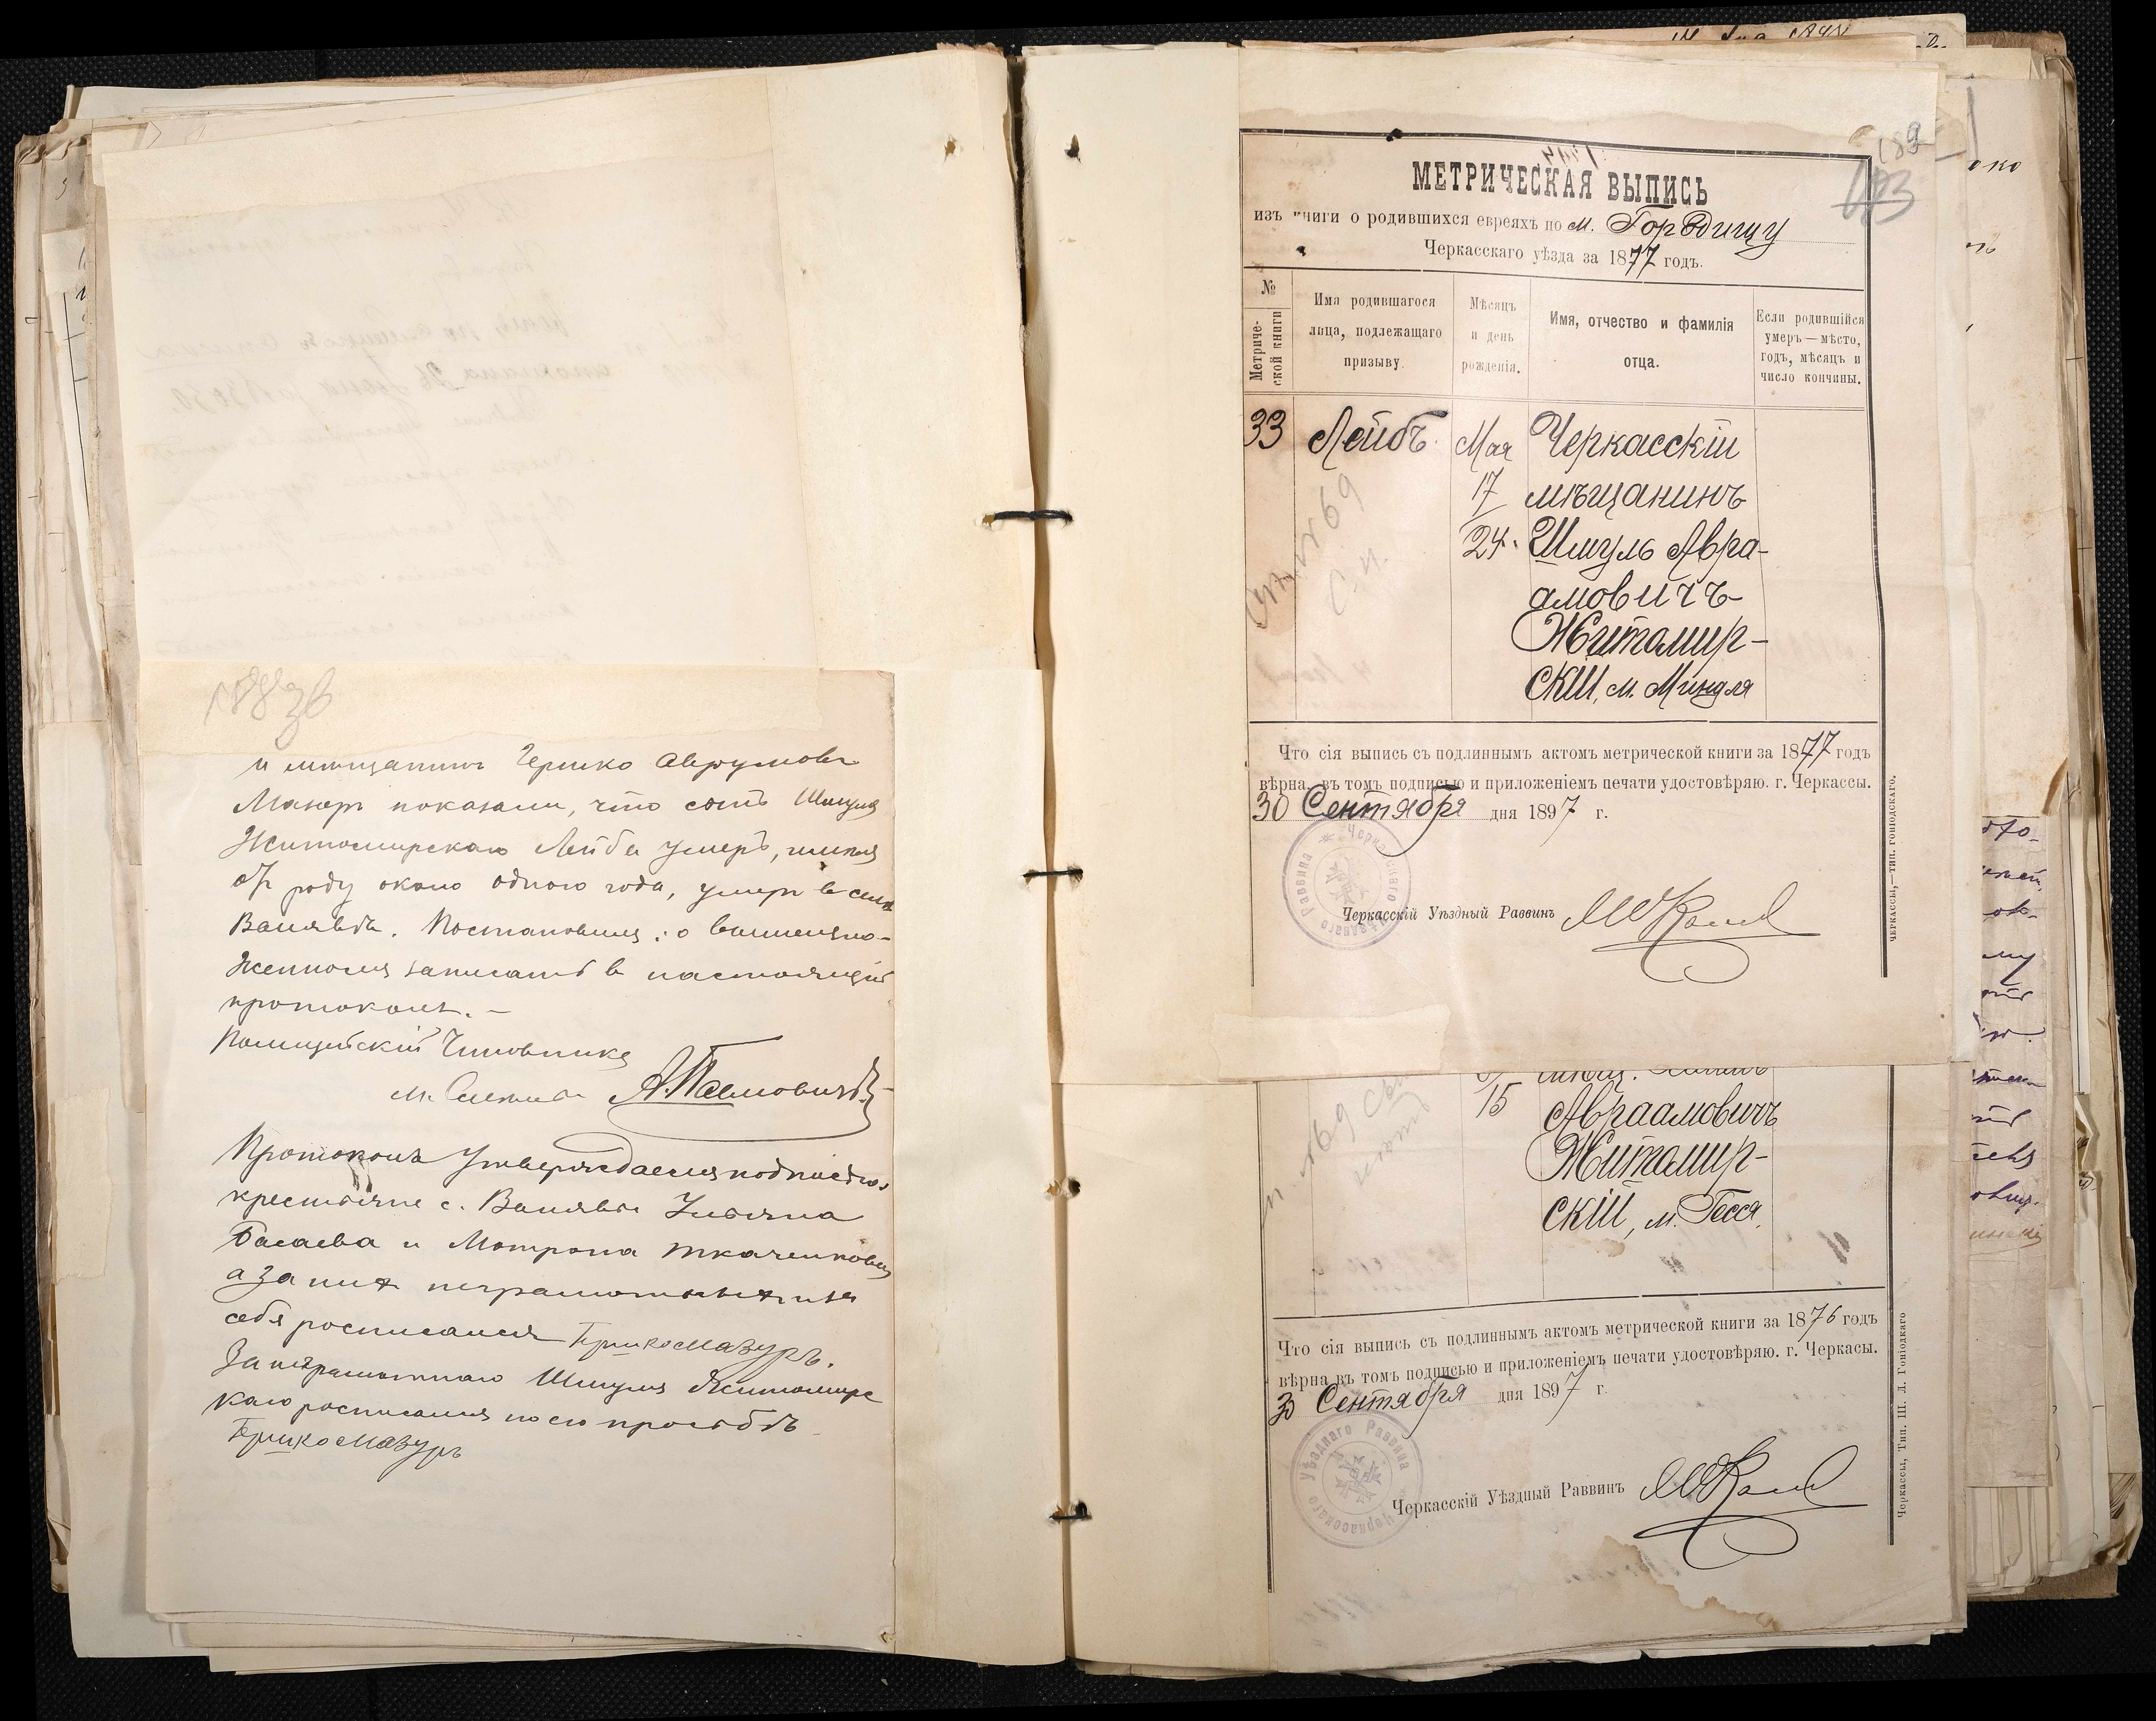 188 зв
и мещанинъ Гершко Аврумовъ
Мазуръ показали, что сынъ Шмуля
Житомирскаго Лейба умеръ, имѣя
отъ роду около одного года, умеръ в селѣ
Валявѣ. Постановилъ: о вышеизло-
женномъ записать в настоящій
протоколъ. —
Полицейскій Чиновникъ
м.
Протоколъ утверждаемъ подписью
крестьяне с. Валявы Ульяна
и Мотрона Ткаченкова
а за них неграмотныхъ и за
себя росписался Гершко Мазуръ.
За неграмотнаго Шмуля Житомирс
каго росписался по его просьбѣ
Гершко Мазуръ
189
МЕТРИЧЕСКАЯ ВЫПИСЬ
изъ книги о родившихся евреяхъ по м. Городищу
Черкасскаго уѣзда за 1877 годъ.
№ Метриче-
ской книги
Имя родившагося
лица, подлежащаго
призыву.
Мѣсяцъ
и день
рожденія.
Имя, отчество и фамилія
отца.
Если родившійся
умеръ—мѣсто,
годъ, мѣсяцъ и
число кончины.
33 Лейбъ. Мая Черкасскій
17 мѣщанинъ
24. Шмуль Авра-
амовичъ
Житомир-
скій, м. Миндля
Что сія выпись съ подлиннымъ актомъ метрической книги за 1877 годъ
вѣрна, въ томъ подписью и приложеніемъ печати удостовѣряю. г. Черкассы.
30 Сентября дня 1897 г.
Черкасскаго Уѣзднаго Раввина
Черкасскій Уѣздный Раввинъ
ЧЕРКАССЫ,—ТИП. ГОНІОДСКАГО.
15 Авраамовичъ
Житомир-
скій, м. Гесся.
Что сія выпись съ подлиннымъ актомъ метрической книги за 1876 годъ
вѣрна въ томъ подписью и приложеніемъ печати удостовѣряю. г. Черкасы.
30 Сентября дня 1897 г.
Черкасскаго Уѣзднаго Раввина
Черкасскій Уѣздный Раввинъ
Черкассы, Тип. Ш. Л. Гоніодкаго